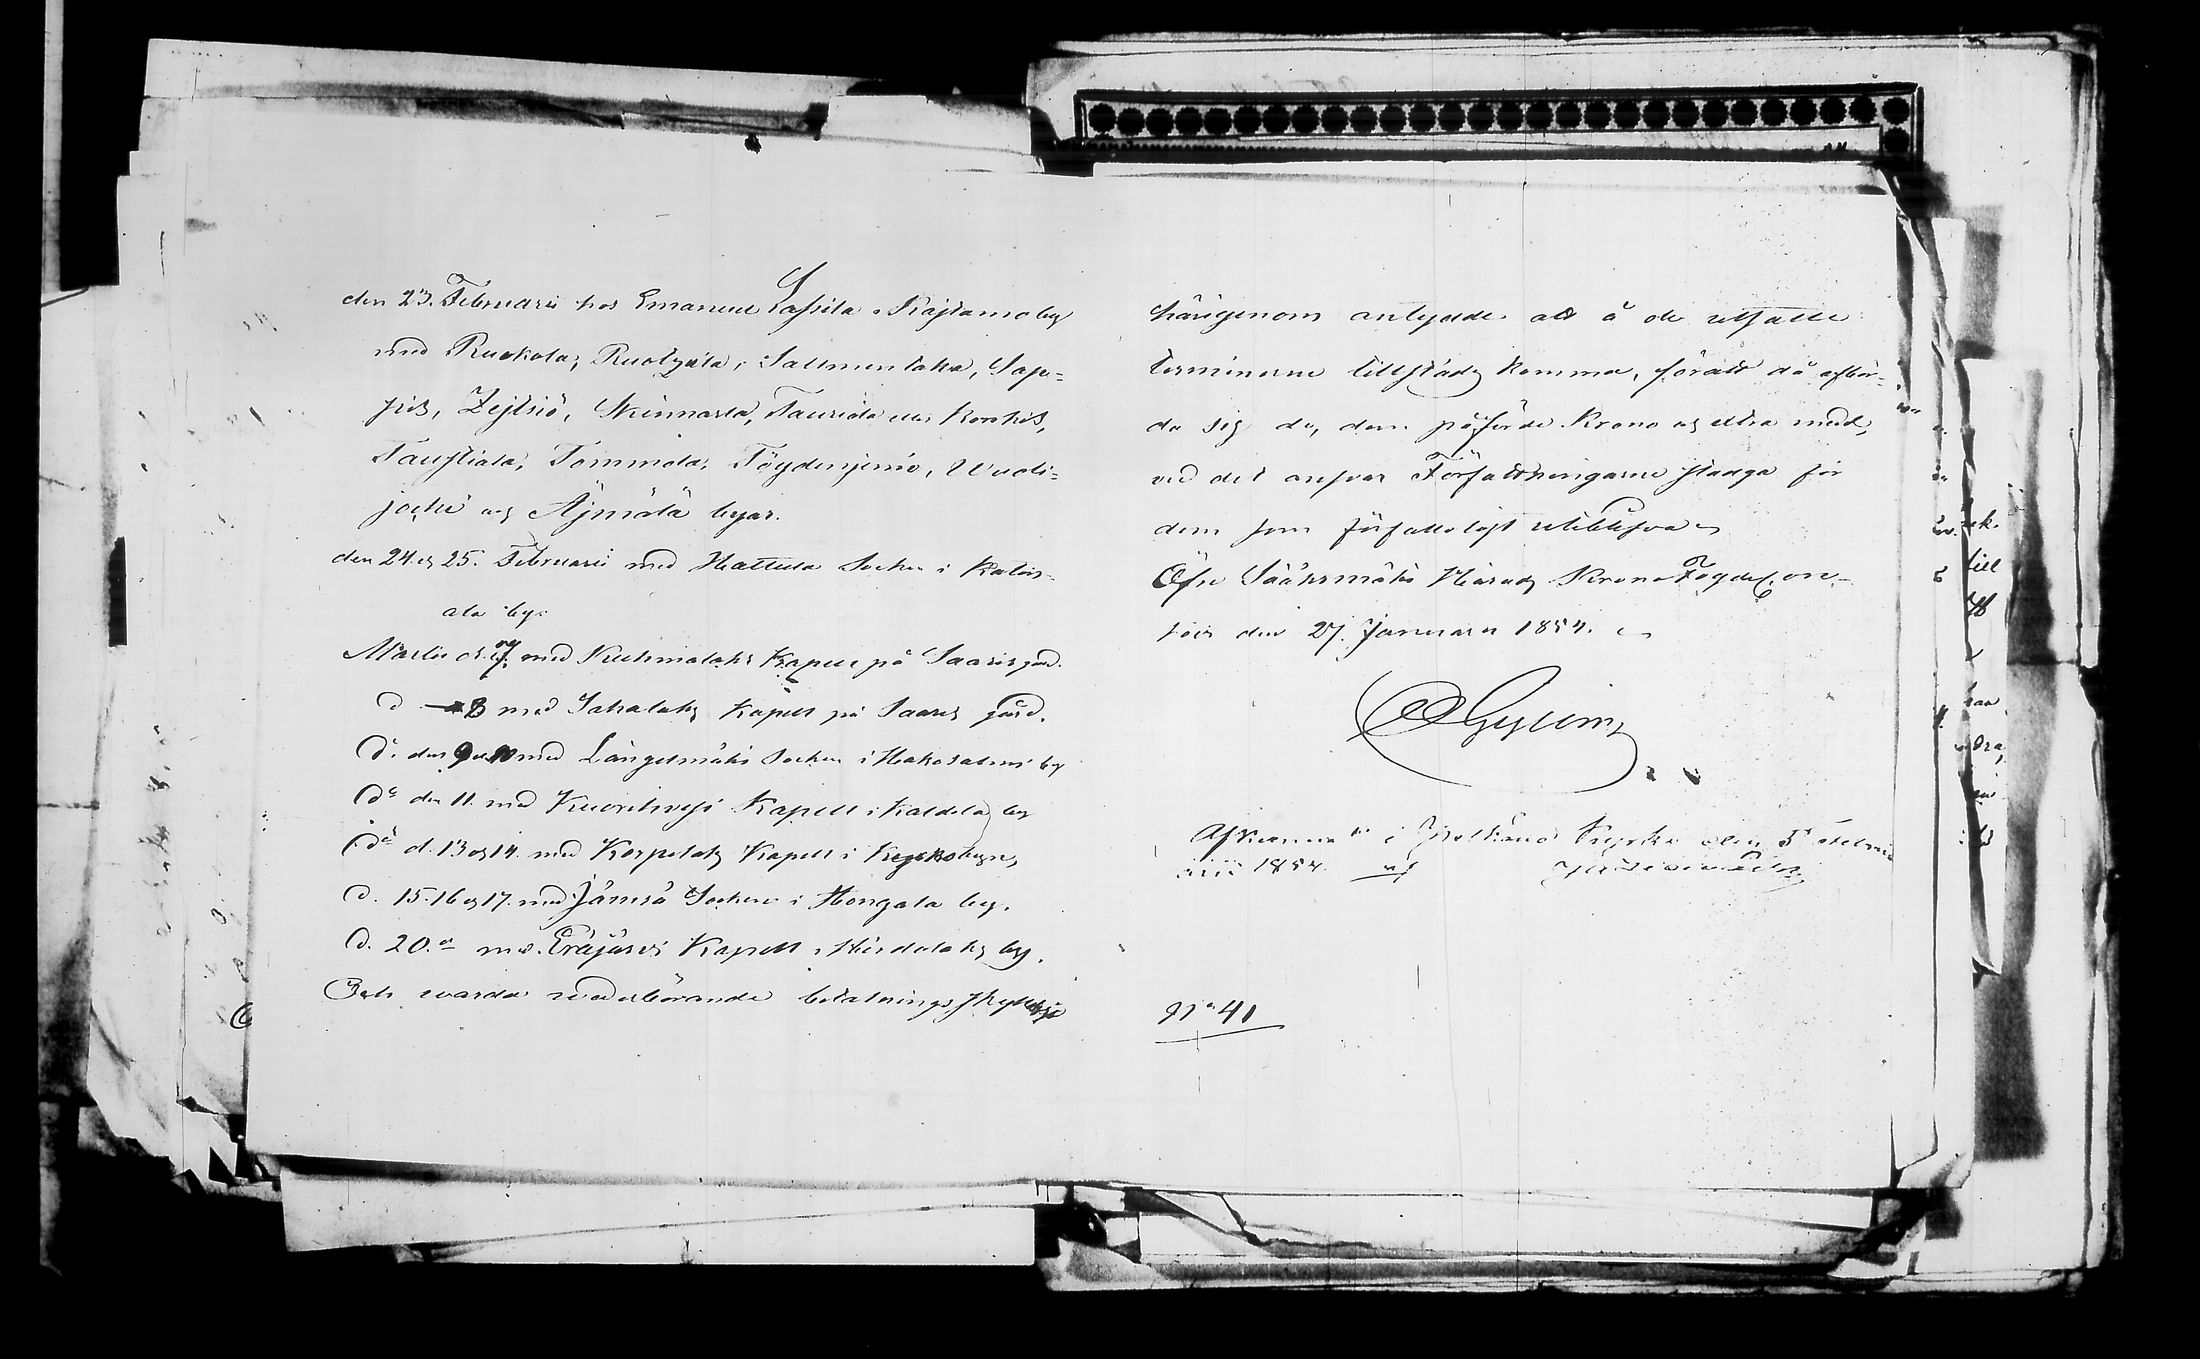 den 23. Februarii hos Emanuel Lassila i Kajtamo by
med Ruokola, Ruotzala, Saltmentaka, Sap=
pis, Zejtsiö, Skinnarla, Taurida eller Korkis,
Taustiala, Tommola, Töydenjemo, Wuoli=
jocki och Äjmälä byar.
den 24. og 25. Februarii med Hattula Socken i Katis-
ala by.
Martii d. 7. med Kuhmalaks Kapell på Saaris gård.
d 8 med Sahalaks Kapell på Saaris gård.
do. den 9 och 10 med Längelmäki Socken i Hakosalmi by
do den 11. med Kuorihvesi Kapell i Kaldila by
do d. 13 og 14. med Korpilaks Kapell i Kyrkobyn,
d. 15. 16 og 17. med Jämsä Socken i Hongola by.
d. 20. med Eräjärvi Kapell i Hirdolaks by.
Och warda wederbörande betalnings skyldige
härigenom antydde att å de utsatte
terminerne tillstädes komma, för att då afbör-
da sig de, dem påförde Krono och andra medel,
vid det answar Författningarne stadga för
dem som förfallolöst utiblifva
Öfre Sääksmäki Härads Krono Fogdekon-
toir den 27. Januarii 1854.
Afkunnat i Pelkäne Kyrka den 5 Febru
arii 1854. af
No 41